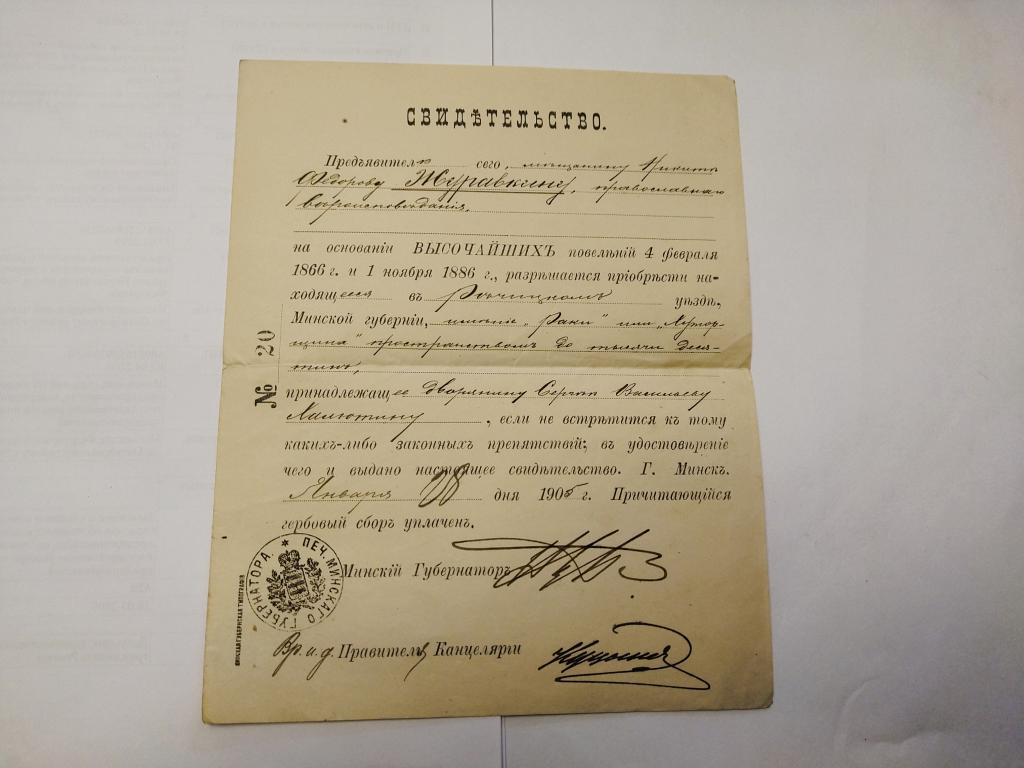 СВИДѢТЕЛЬСТВО.
Предъявителю сего, мѣщанину Никитѣ
Ѳедорову Журавкину, православнаго
вѣроисповѣданія,
на основаніи ВЫСОЧАЙШИХЪ повелѣній 4 февраля
1866 г. и 1 ноября 1886 г., разрѣшается пріобрѣсти на-
ходящееся въ Рѣчицкомъ уѣздѣ,
Минской губерніи, имѣніе „Раки" или
пространствомъ до тысячи деся-
тинъ,
принадлежащее дворянину Сергѣю Васильеву
, если не встрѣтится къ тому
какихъ-либо законныхъ препятствій; въ удостовѣреніе
чего и выдано настоящее свидѣтельство. Г. Минскъ.
Января 28 дня 1905 г. Причитающійся
гербовый сборъ уплаченъ.
Минскій Губернаторъ
Вр. и. д. Правителя Канцеляріи
№ 20
ПЕЧ. МИНСКАГО ГУБЕРНАТОРА.
МИНСКАЯ ГУБЕРНСКАЯ ТИПОГРАФІЯ